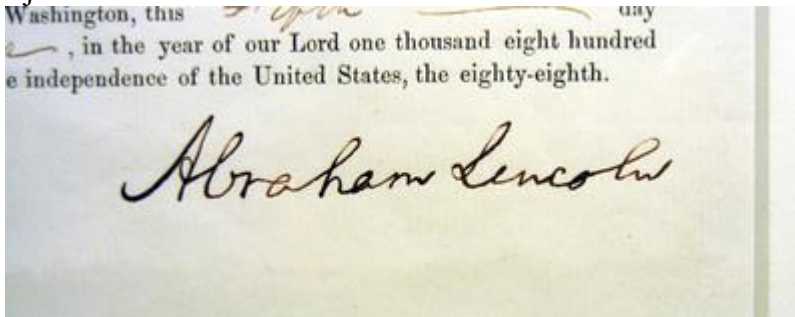 Washington, this day
, in the year of our Lord one thousand eight hundred
e independence of the United States, the eighty-eighth.
Abraham Lincoln